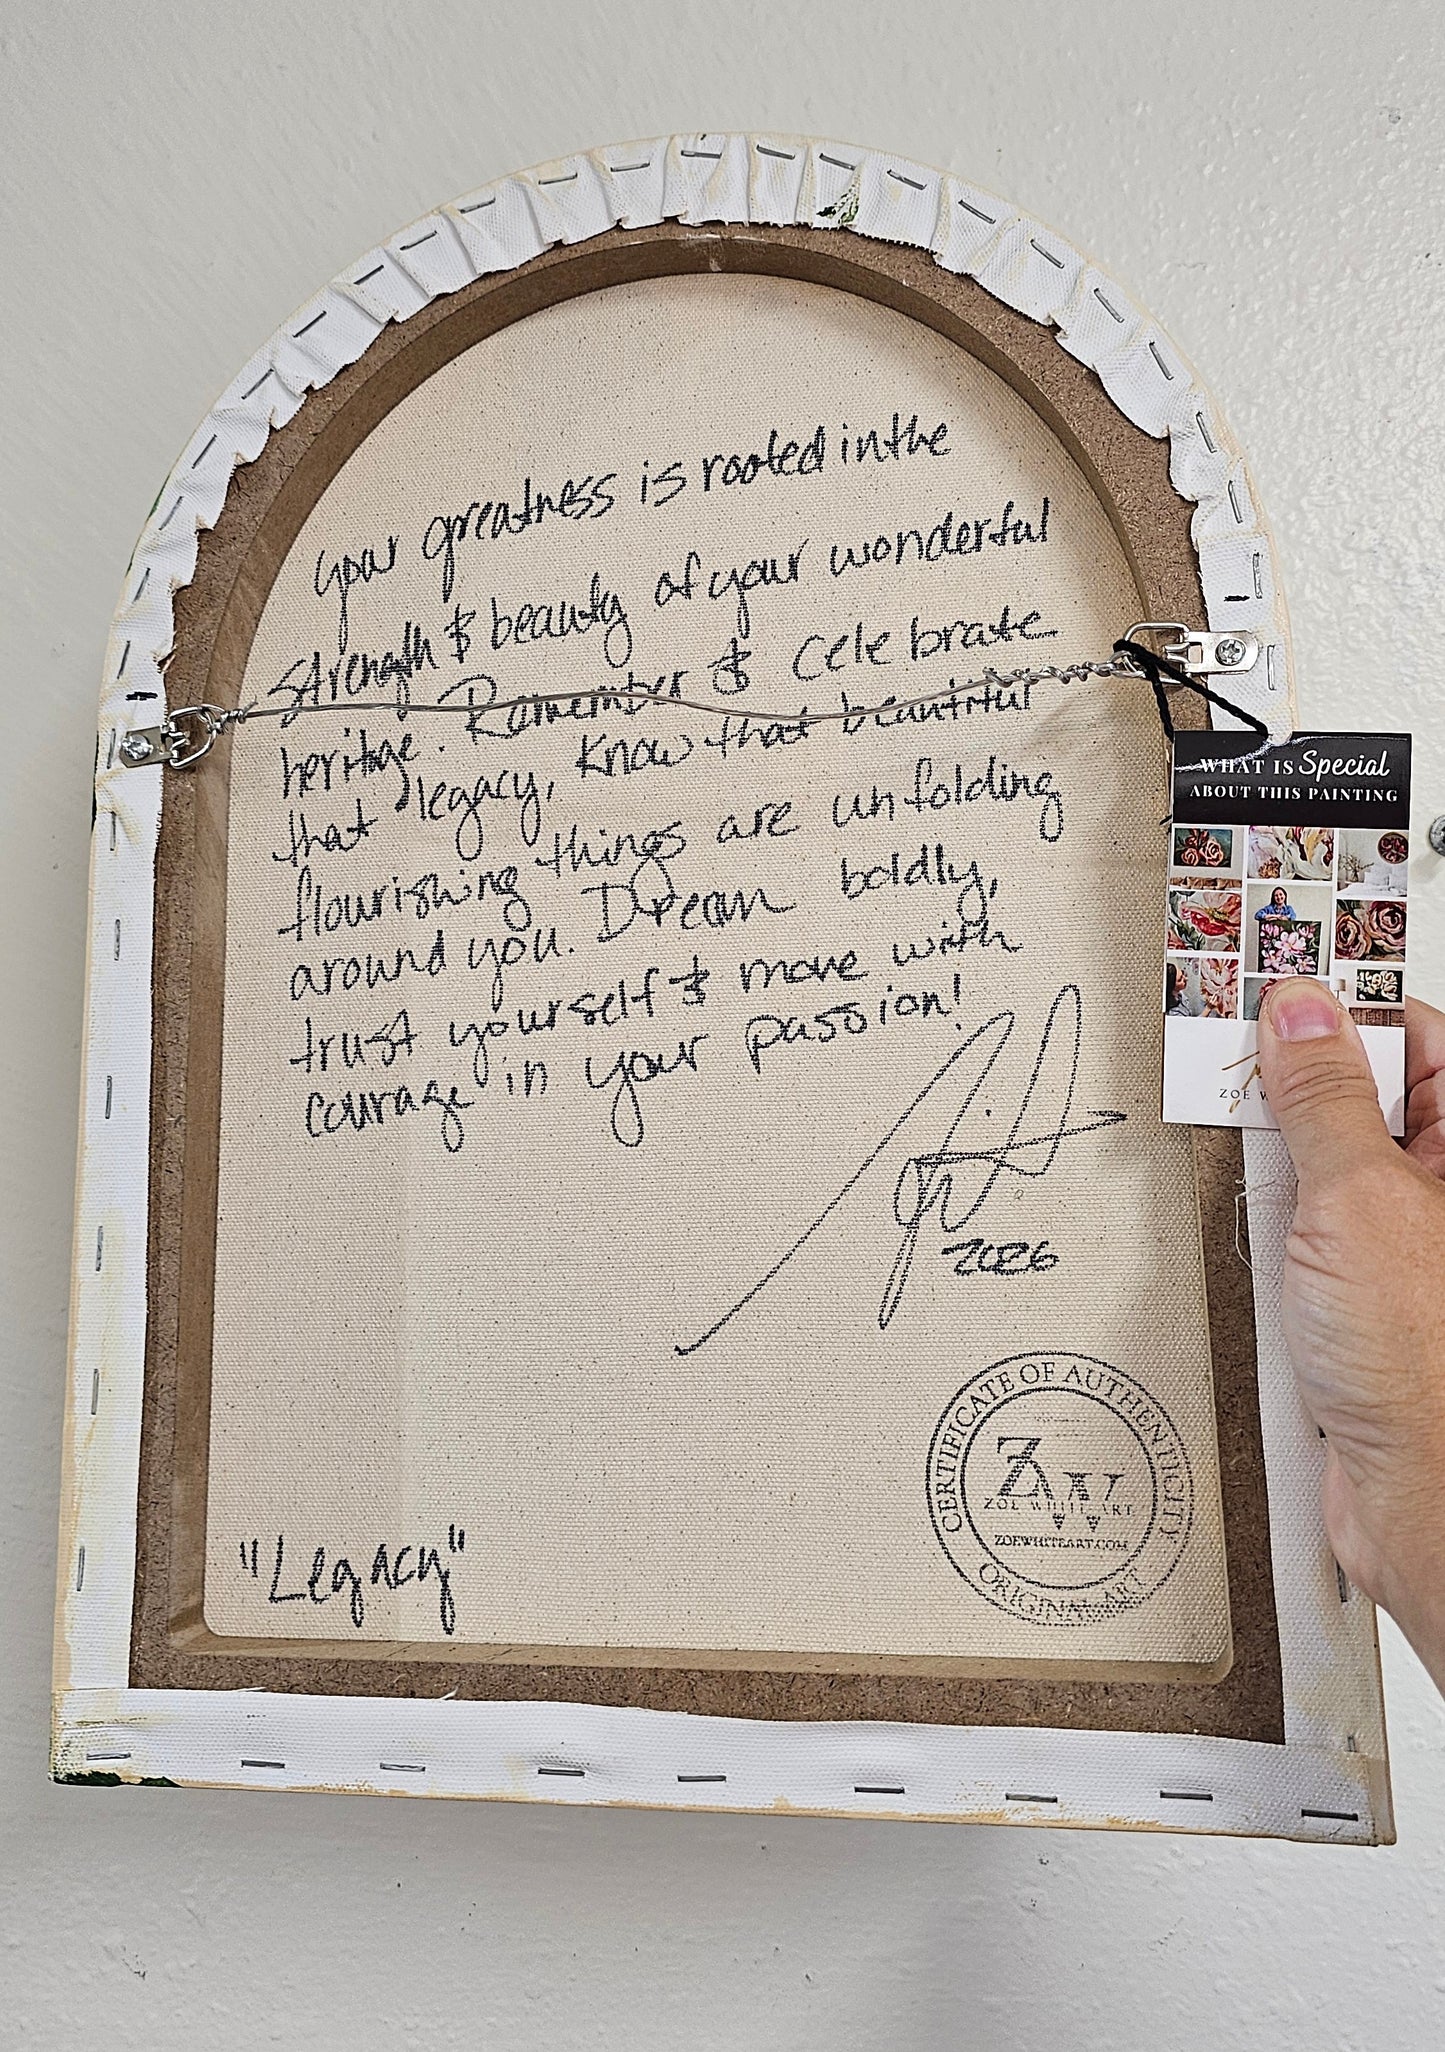 your greatness is rooted in the
strength & beauty of your wonderful
heritage. Remember & celebrate
that legacy, know that beautiful
flourishing things are unfolding
around you. Dream boldly,
trust yourself & move with
courage in your passion!
2026
"Legacy"
WHAT IS Special
ABOUT THIS PAINTING
ZOË W
CERTIFICATE OF AUTHENTICITY
ZW
ZOË WHITE ART
ZOEWHITEART.COM
ORIGINAL ART